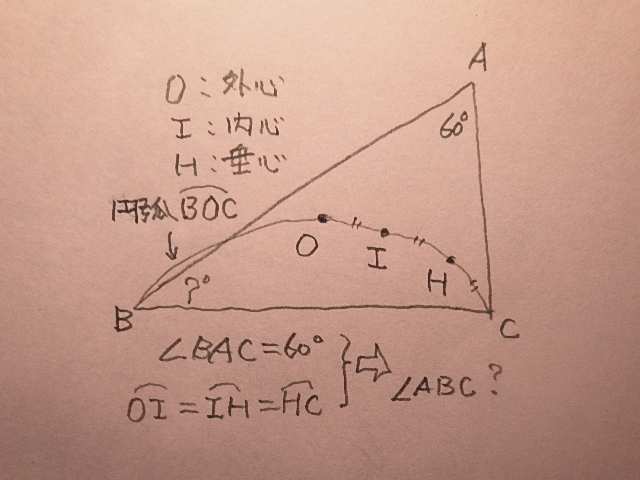 O：外心
I：内心
H：垂心
円弧BOC
A
60°
O
I
H
?°
B
C
∠BAC=60°
OI=IH=HC
⇨ ∠ABC?